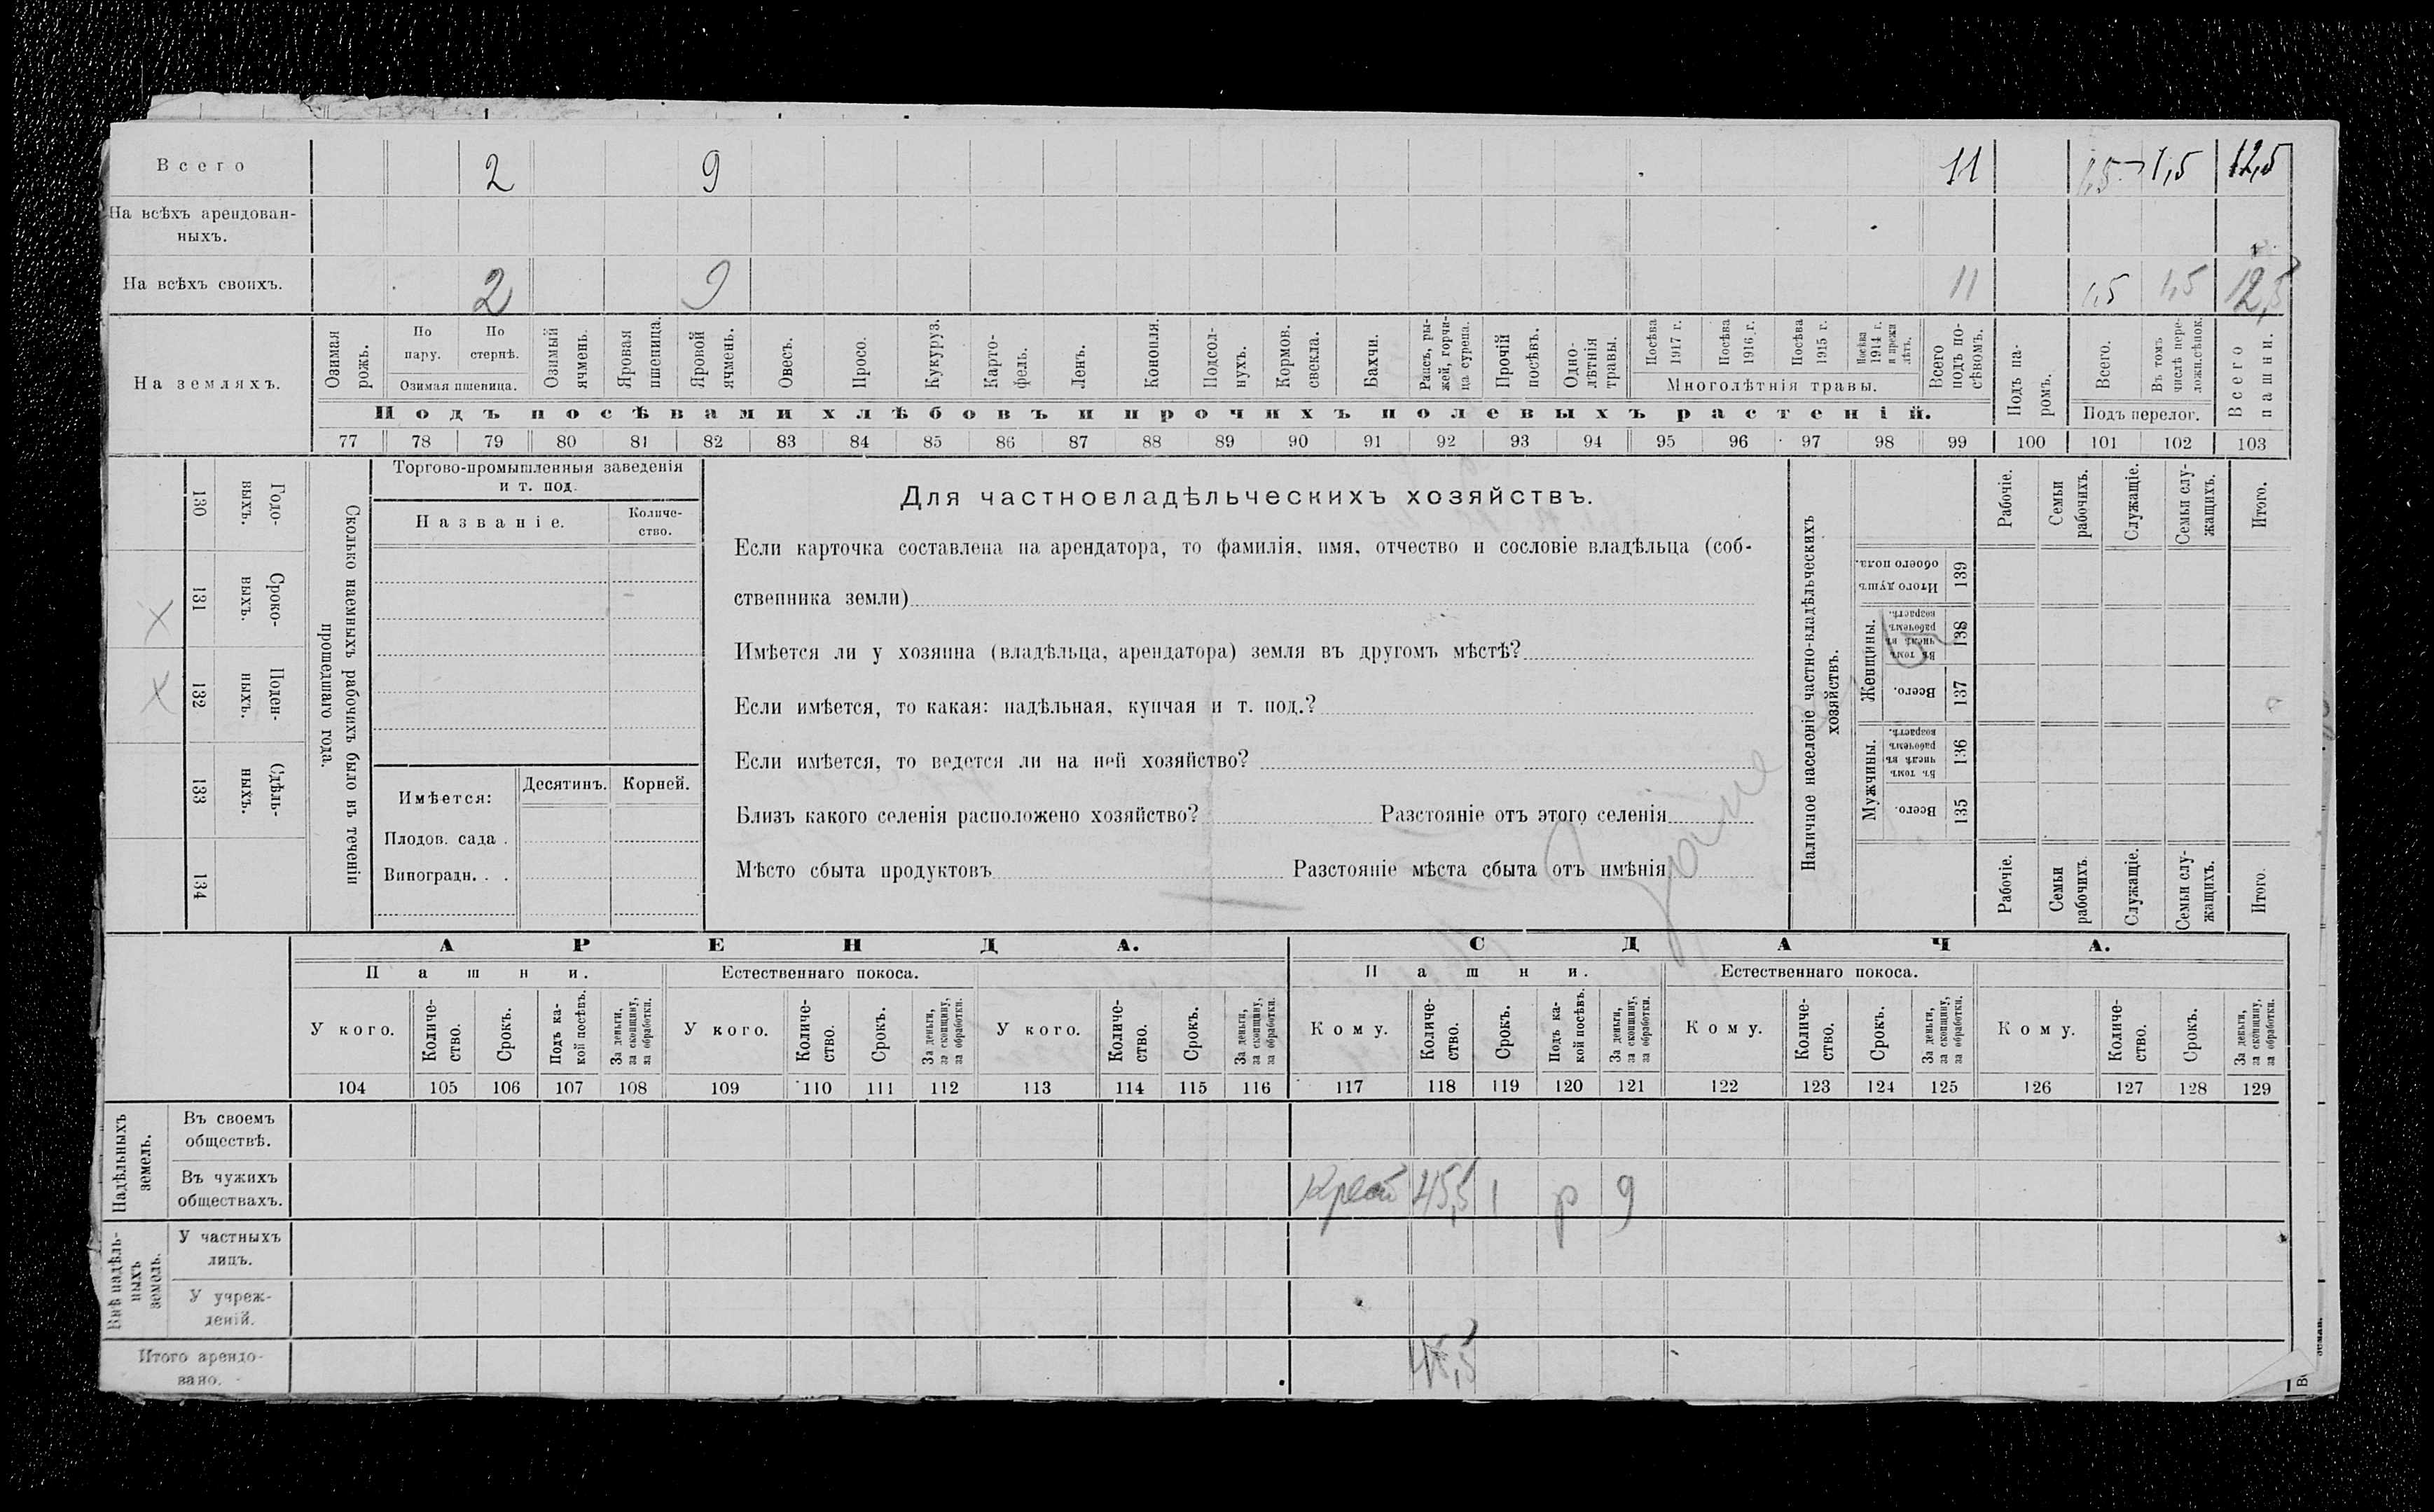 Всего 2 9 11 1,5 1,5 12,5
На всѣхъ арендован-
ныхъ.
На всѣхъ своихъ. 2 9 11 1,5 1,5 12,5
На земляхъ.
Озимая рожь.
По пару.
По стернѣ.
Озимая пшеница.
Озимый ячмень.
Яровая пшеница.
Яровой ячмень.
Овесъ.
Просо.
Кукуруз.
Карто-
фель.
Ленъ.
Конопля.
Подсол-
нухъ.
Кормов. свекла.
Бахчи.
Рапсъ, ры-
жей, горчи-
ца сурепа.
Прочій посѣвъ.
Одно-
лѣтнія травы.
Посѣва 1917 г.
Посѣва 1916 г.
Посѣва 1915 г.
Посѣва 1914 г. и прежн лѣтъ.
Многолѣтнія травы.
Всего подъ по-
сѣвомъ.
Подъ па-
ромъ.
Всего.
Въ томъ числѣ пере-
ложн.сѣнок.
Подъ перелог.
Всего пашни.
Подъ посѣвами хлѣбовъ и прочихъ полевыхъ растеній.
77 78 79 80 81 82 83 84 85 86 87 88 89 90 91 92 93 94 95 96 97 98 99 100 101 102 103
Годо-
выхъ.
130
Сроко-
выхъ.
131
х
Поден-
ныхъ.
132
х
Сдѣль-
ныхъ.
133
134
Сколько наемныхъ рабочихъ было въ теченіи
прошедшаго года.
Торгово-промышленныя заведенія
и т. под.
Названіе.
Количе-
ство.
Имѣется:
Десятинъ. Корней.
Плодов. сада .
Виноградн. . .
Для частновладѣльческихъ хозяйствъ.
Если карточка составлена на арендатора, то фамилія, имя, отчество и сословіе владѣльца (соб-
ственника земли)
Имѣется ли у хозяина (владѣльца, арендатора) земля въ другомъ мѣстѣ?
Если имѣется, то какая: надѣльная, купчая и т. под.?
Если имѣется, то ведется ли на ней хозяйство?
Близъ какого селенія расположено хозяйство? Разстояніе отъ этого селенія
Мѣсто сбыта продуктовъ Разстояніе мѣста сбыта отъ имѣнія
Наличное населеніе частно-владѣльческихъ
хозяйствъ.
Рабочіе.
Семьи рабочихъ.
Служащіе.
Семьи слу-
жащихъ.
Итого.
Итого душъ обоего пола.
139
Женщины.
Въ томъ числѣ въ рабочемъ возрастѣ.
138
Всего.
137
Мужчины.
Въ томъ числѣ въ рабочемъ возрастѣ.
136
Всего.
135
Рабочіе.
Семьи рабочихъ.
Служащіе.
Семьи слу-
жащихъ.
Итого.
АРЕНДА. СДАЧА.
Пашни. Естественнаго покоса. Пашни. Естественнаго покоса.
У кого.
Количе-
ство.
Срокъ.
Подъ ка-
кой посѣвъ.
За деньги, за скопщину, за обработки.
У кого.
Количе-
ство.
Срокъ.
За деньги, за скопщину, за обработки.
У кого.
Количе-
ство.
Срокъ.
За деньги, за скопщину, за обработки.
Кому.
Количе-
ство.
Срокъ.
Подъ ка-
кой посѣвъ.
За деньги, за скопщину, за обработки.
Кому.
Количе-
ство.
Срокъ.
За деньги, за скопщину, за обработки.
Кому.
Количе-
ство.
Срокъ.
За деньги, за скопщину, за обработки.
104 105 106 107 108 109 110 111 112 113 114 115 116 117 118 119 120 121 122 123 124 125 126 127 128 129
Надѣльныхъ земель.
Въ своемъ
обществѣ.
Въ чужихъ
обществахъ.
45,5 1 р 9
Внѣ надѣль-
ныхъ земель.
У частныхъ
лицъ.
У учреж-
деній.
Итого арендо-
вано.
45,5